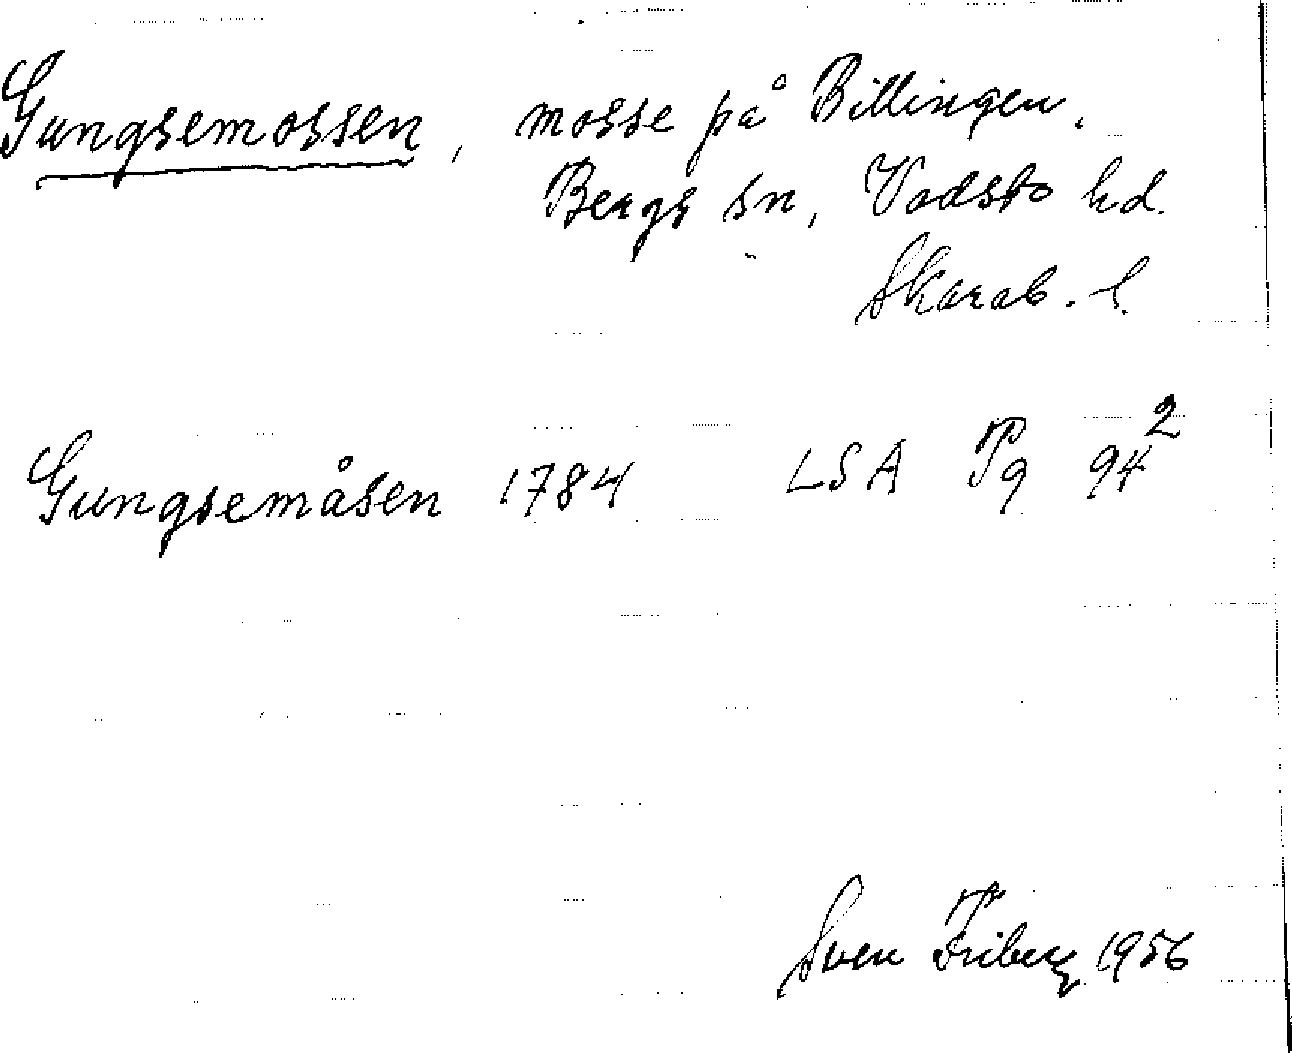 Gungsemossen, mosse på Billingen.
Bergs sn, Vadsbo hd.
Skarab. l.
Gungsemåsen 1784 LSA P9 94²
Sven Friberg 1956